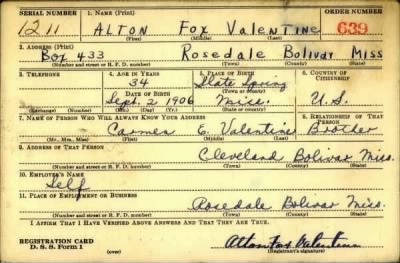 SERIAL NUMBER 1. NAME (Print) ORDER NUMBER
1211 ALTON Fox VALENTINE 639
(First) (Middle) (Last)
2. ADDRESS (Print)
Box 433 Rosedale Bolivar Miss
(Number and street or R. F. D. number) (Town) (County) (State)
3. TELEPHONE 4. AGE IN YEARS 5. PLACE OF BIRTH 6. COUNTRY OF CITIZENSHIP
34 Slate Spring
DATE OF BIRTH (Town or county)
Sept. 2 1906 Miss. U.S.
(Exchange) (Number) (Mo.) (Day) (Yr.) (State or country)
7. NAME OF PERSON WHO WILL ALWAYS KNOW YOUR ADDRESS 8. RELATIONSHIP OF THAT PERSON
Carmen E. Valentine Brother
(Mr., Mrs., Miss) (First) (Middle) (Last)
9. ADDRESS OF THAT PERSON
Cleveland Bolivar Miss.
(Number and street or R. F. D. number) (Town) (County) (State)
10. EMPLOYER'S NAME
Self
11. PLACE OF EMPLOYMENT OR BUSINESS
Rosedale Bolivar Miss.
(Number and street or R. F. D. number) (Town) (County) (State)
I AFFIRM THAT I HAVE VERIFIED ABOVE ANSWERS AND THAT THEY ARE TRUE.
REGISTRATION CARD
D. S. S. Form 1 (over) Alton Fox Valentine
(Registrant's signature)